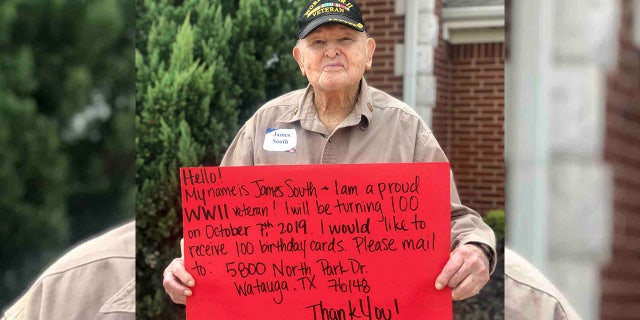 VETERAN
James
South
Hello!
My name is James South ~ I am a proud
WWII veteran! I will be turning 100
on October 7th 2019. I would like to
receive 100 birthday cards. Please mail
to: 5800 North Park Dr.
Watauga, TX 76148
Thank You!